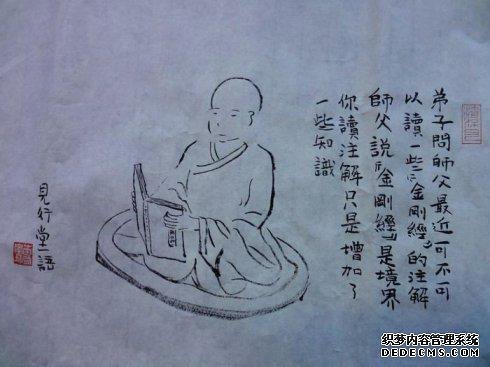 弟子問師父最近可不可
以讀一些《金剛經》的注解
師父說《金剛經》是境界
你讀注解只是增加了
一些知識
見行堂語
织梦内容管理系统
DEDECMS.COM